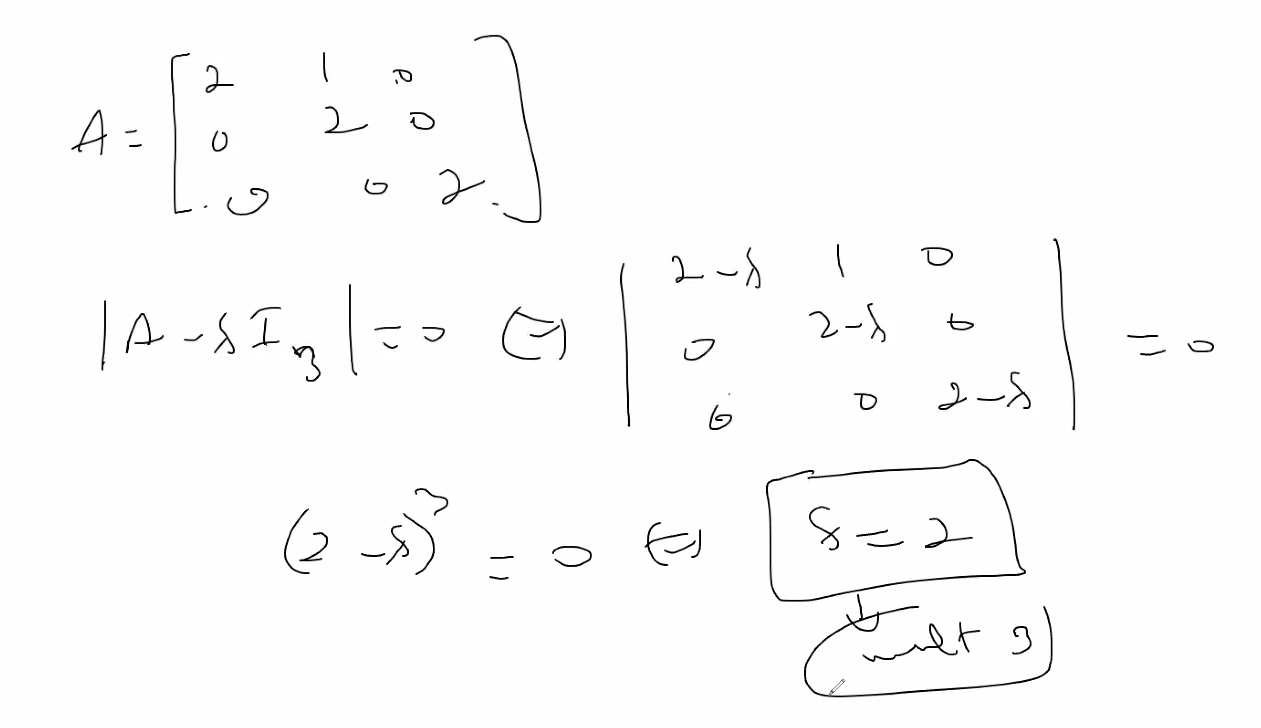 A = [ 2 1 0
0 2 0
0 0 2 ]
|A - λI₃| = 0 ⇔ | 2-λ 1 0
0 2-λ 0
0 0 2-λ | = 0
(2-λ)³ = 0 ⇔ λ = 2
mult 3